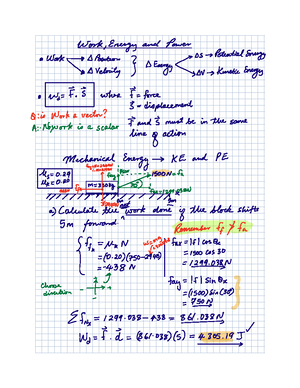 Work, Energy and Power
• Work → Δ Position
→ Δ Velocity
Δ Energy
ΔS → Potential Energy
ΔV → Kinetic Energy
• W = F⃗ . S⃗ where f⃗ = force
S⃗ = displacement
Q: is Work a vector?
A: No, work is a scalar
F⃗ and S⃗ must be in the same
line of action
Mechanical Energy → KE and PE
1500N = fₐ
M = 330kg
30°
a) Calculate the work done if the block shifts
5m forward
Remember fₓ ≠ fₐ
= μₖ N
= (0.20)(750-2940)
= -438 N
fax = |f| cos θₓ
= 1500 cos 30
= 1299.038N
fay = |f| sin θₓ
= (1500) sin (30)
= 750 N
Choose
direction
Σf = 1299.038 - 438 = 861.038 N
W = f⃗ . d⃗ = (861.038)(5) = 4305.19 J